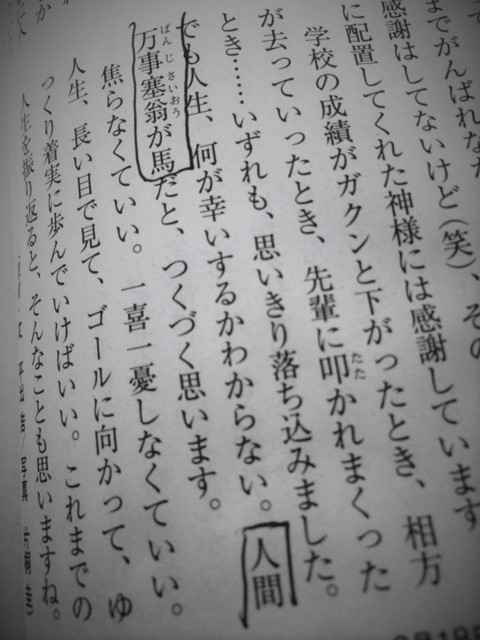 までがんばれなか
感謝はしてないけど(笑)、その
に配置してくれた神様には感謝しています
学校の成績がガクンと下がったとき、相方
が去っていったとき、先輩に叩かれまくった
たた
とき……いずれも、思いきり落ち込みました。
でも人生、何が幸いするかわからない。人間
万事塞翁が馬だと、つくづく思います。
ばんじさいおう
焦らなくていい。一喜一憂しなくていい。
人生、長い目で見て、ゴールに向かって、ゆ
っくり着実に歩んでいけばいい。これまでの
人生を振り返ると、そんなことも思いますね。